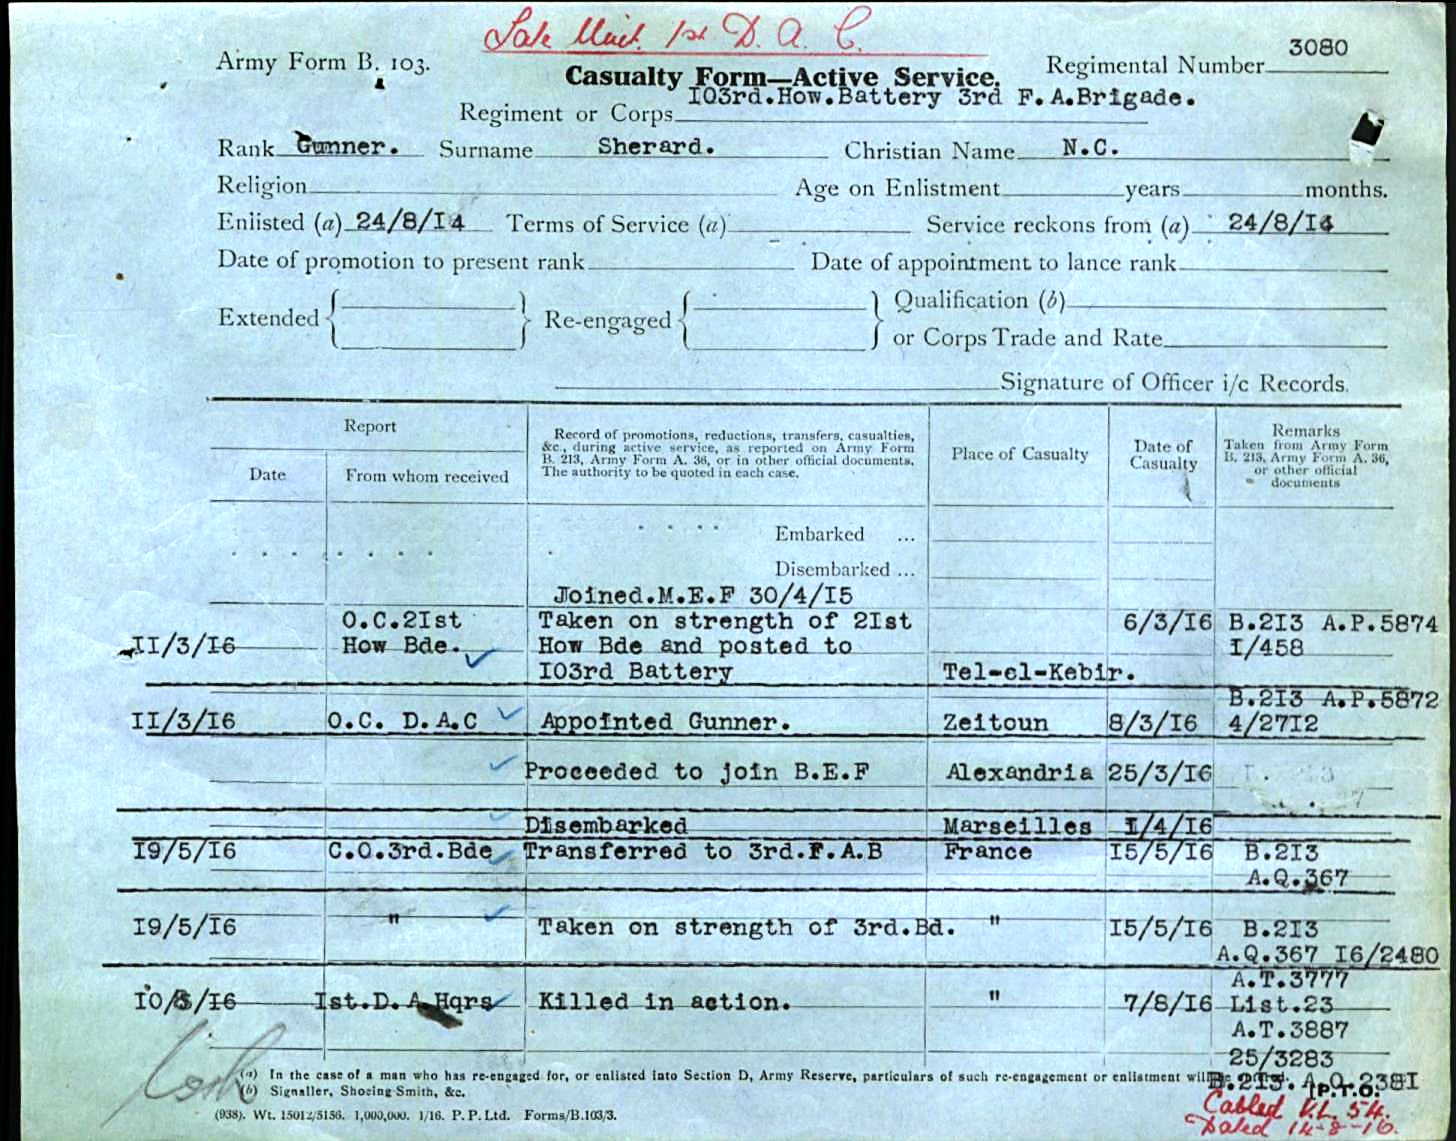 Late Unit. 1st D. A. C.
Army Form B. 103.
Casualty Form—Active Service.
Regimental Number 3080
Regiment or Corps I03rd.How.Battery 3rd F.A.Brigade.
Rank Gunner. Surname Sherard. Christian Name N.C.
Religion Age on Enlistment years months.
Enlisted (a) 24/8/I4 Terms of Service (a) Service reckons from (a) 24/8/I4
Date of promotion to present rank Date of appointment to lance rank
Extended Re-engaged Qualification (b)
or Corps Trade and Rate
Signature of Officer i/c Records.
Report
Date From whom received
Record of promotions, reductions, transfers, casualties,
&c., during active service, as reported on Army Form
B. 213, Army Form A. 36, or in other official documents.
The authority to be quoted in each case.
Place of Casualty
Date of
Casualty
Remarks
Taken from Army Form
B. 213, Army Form A. 36,
or other official
documents
Embarked ...
Disembarked ...
Joined.M.E.F 30/4/I5
O.C.2Ist Taken on strength of 2Ist 6/3/I6 B.2I3 A.P.5874
II/3/I6 How Bde. How Bde and posted to I/458
I03rd Battery Tel-el-Kebir.
B.2I3 A.P.5872
II/3/I6 O.C. D.A.C Appointed Gunner. Zeitoun 8/3/I6 4/27I2
Proceeded to join B.E.F Alexandria 25/3/I6
Disembarked Marseilles I/4/I6
I9/5/I6 C.O.3rd.Bde Transferred to 3rd.F.A.B France I5/5/I6 B.2I3
A.Q.367
I9/5/I6 " Taken on strength of 3rd.Bd. " I5/5/I6 B.2I3
A.Q.367 I6/2480
A.T.3777
I0/8/I6 Ist.D.A.Hqrs Killed in action. " 7/8/I6 List.23
A.T.3887
25/3283
(a) In the case of a man who has re-engaged for, or enlisted into Section D, Army Reserve, particulars of such re-engagement or enlistment will
B.2I3. A.Q.238I
(b) Signaller, Shoeing-Smith, &c.
[P.T.O.
(938). Wt. 15012/5156. 1,000,000. 1/16. P. P. Ltd. Forms/B.103/3.
Cabled K.L. 54.
Dated 14-8-16.